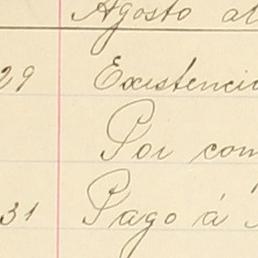 Agosto al
29 Existencia
Por com
31 Pago á